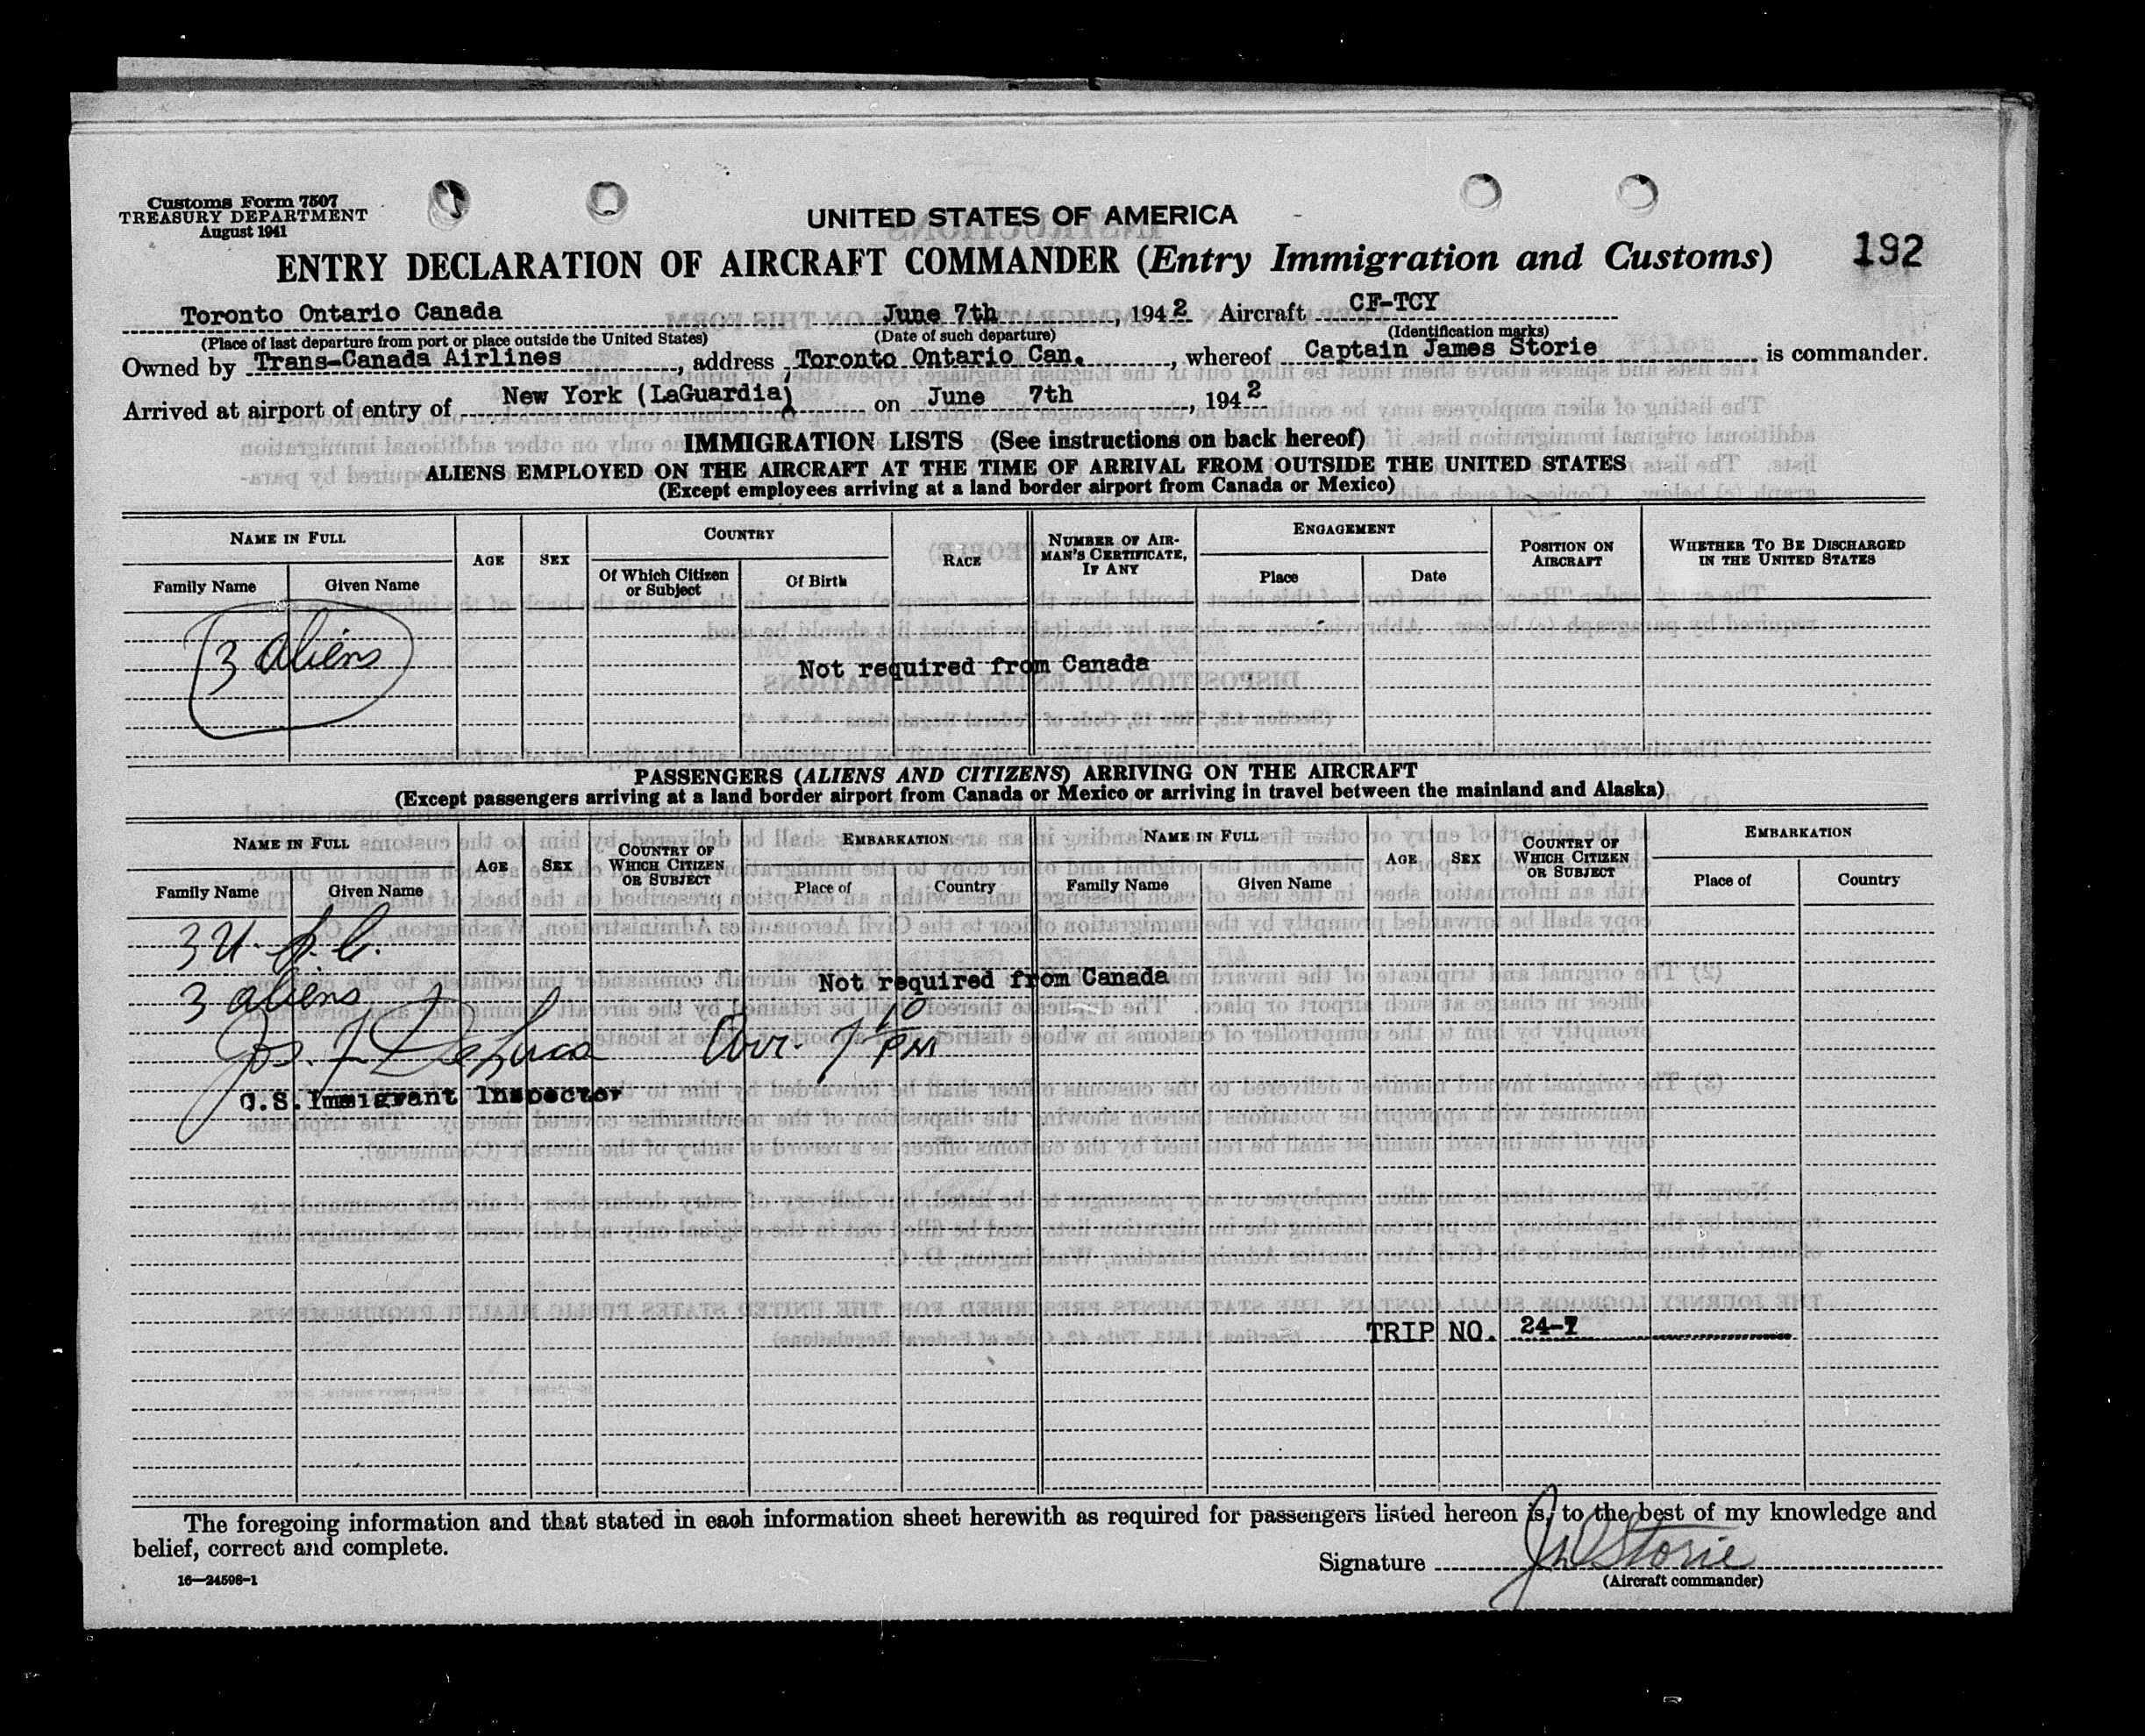 Customs Form 7507
TREASURY DEPARTMENT
August 1941
UNITED STATES OF AMERICA
ENTRY DECLARATION OF AIRCRAFT COMMANDER (Entry Immigration and Customs) 192
Toronto Ontario Canada June 7th, 1942 Aircraft CF-TCY
(Place of last departure from port or place outside the United States) (Date of such departure) (Identification marks)
Owned by Trans-Canada Airlines, address Toronto Ontario Can., whereof Captain James Storie is commander.
Arrived at airport of entry of New York (LaGuardia) on June 7th, 1942
IMMIGRATION LISTS (See instructions on back hereof)
ALIENS EMPLOYED ON THE AIRCRAFT AT THE TIME OF ARRIVAL FROM OUTSIDE THE UNITED STATES
(Except employees arriving at a land border airport from Canada or Mexico)
NAME IN FULL AGE SEX COUNTRY RACE NUMBER OF AIRMAN'S CERTIFICATE, IF ANY ENGAGEMENT POSITION ON AIRCRAFT WHETHER TO BE DISCHARGED IN THE UNITED STATES
Family Name Given Name Of Which Citizen or Subject Of Birth Place Date
3 aliens
Not required from Canada
PASSENGERS (ALIENS AND CITIZENS) ARRIVING ON THE AIRCRAFT
(Except passengers arriving at a land border airport from Canada or Mexico or arriving in travel between the mainland and Alaska)
NAME IN FULL AGE SEX COUNTRY OF WHICH CITIZEN OR SUBJECT EMBARKATION NAME IN FULL AGE SEX COUNTRY OF WHICH CITIZEN OR SUBJECT EMBARKATION
Family Name Given Name Place of Country Family Name Given Name Place of Country
3 U.S.C.
Not required from Canada
3 aliens
Jos. F. Arr. 7 10 PM
U.S. Immigrant Inspector
TRIP NO. 24-7
The foregoing information and that stated in each information sheet herewith as required for passengers listed hereon is, to the best of my knowledge and
belief, correct and complete.
Signature J Storie
(Aircraft commander)
16—24598-1